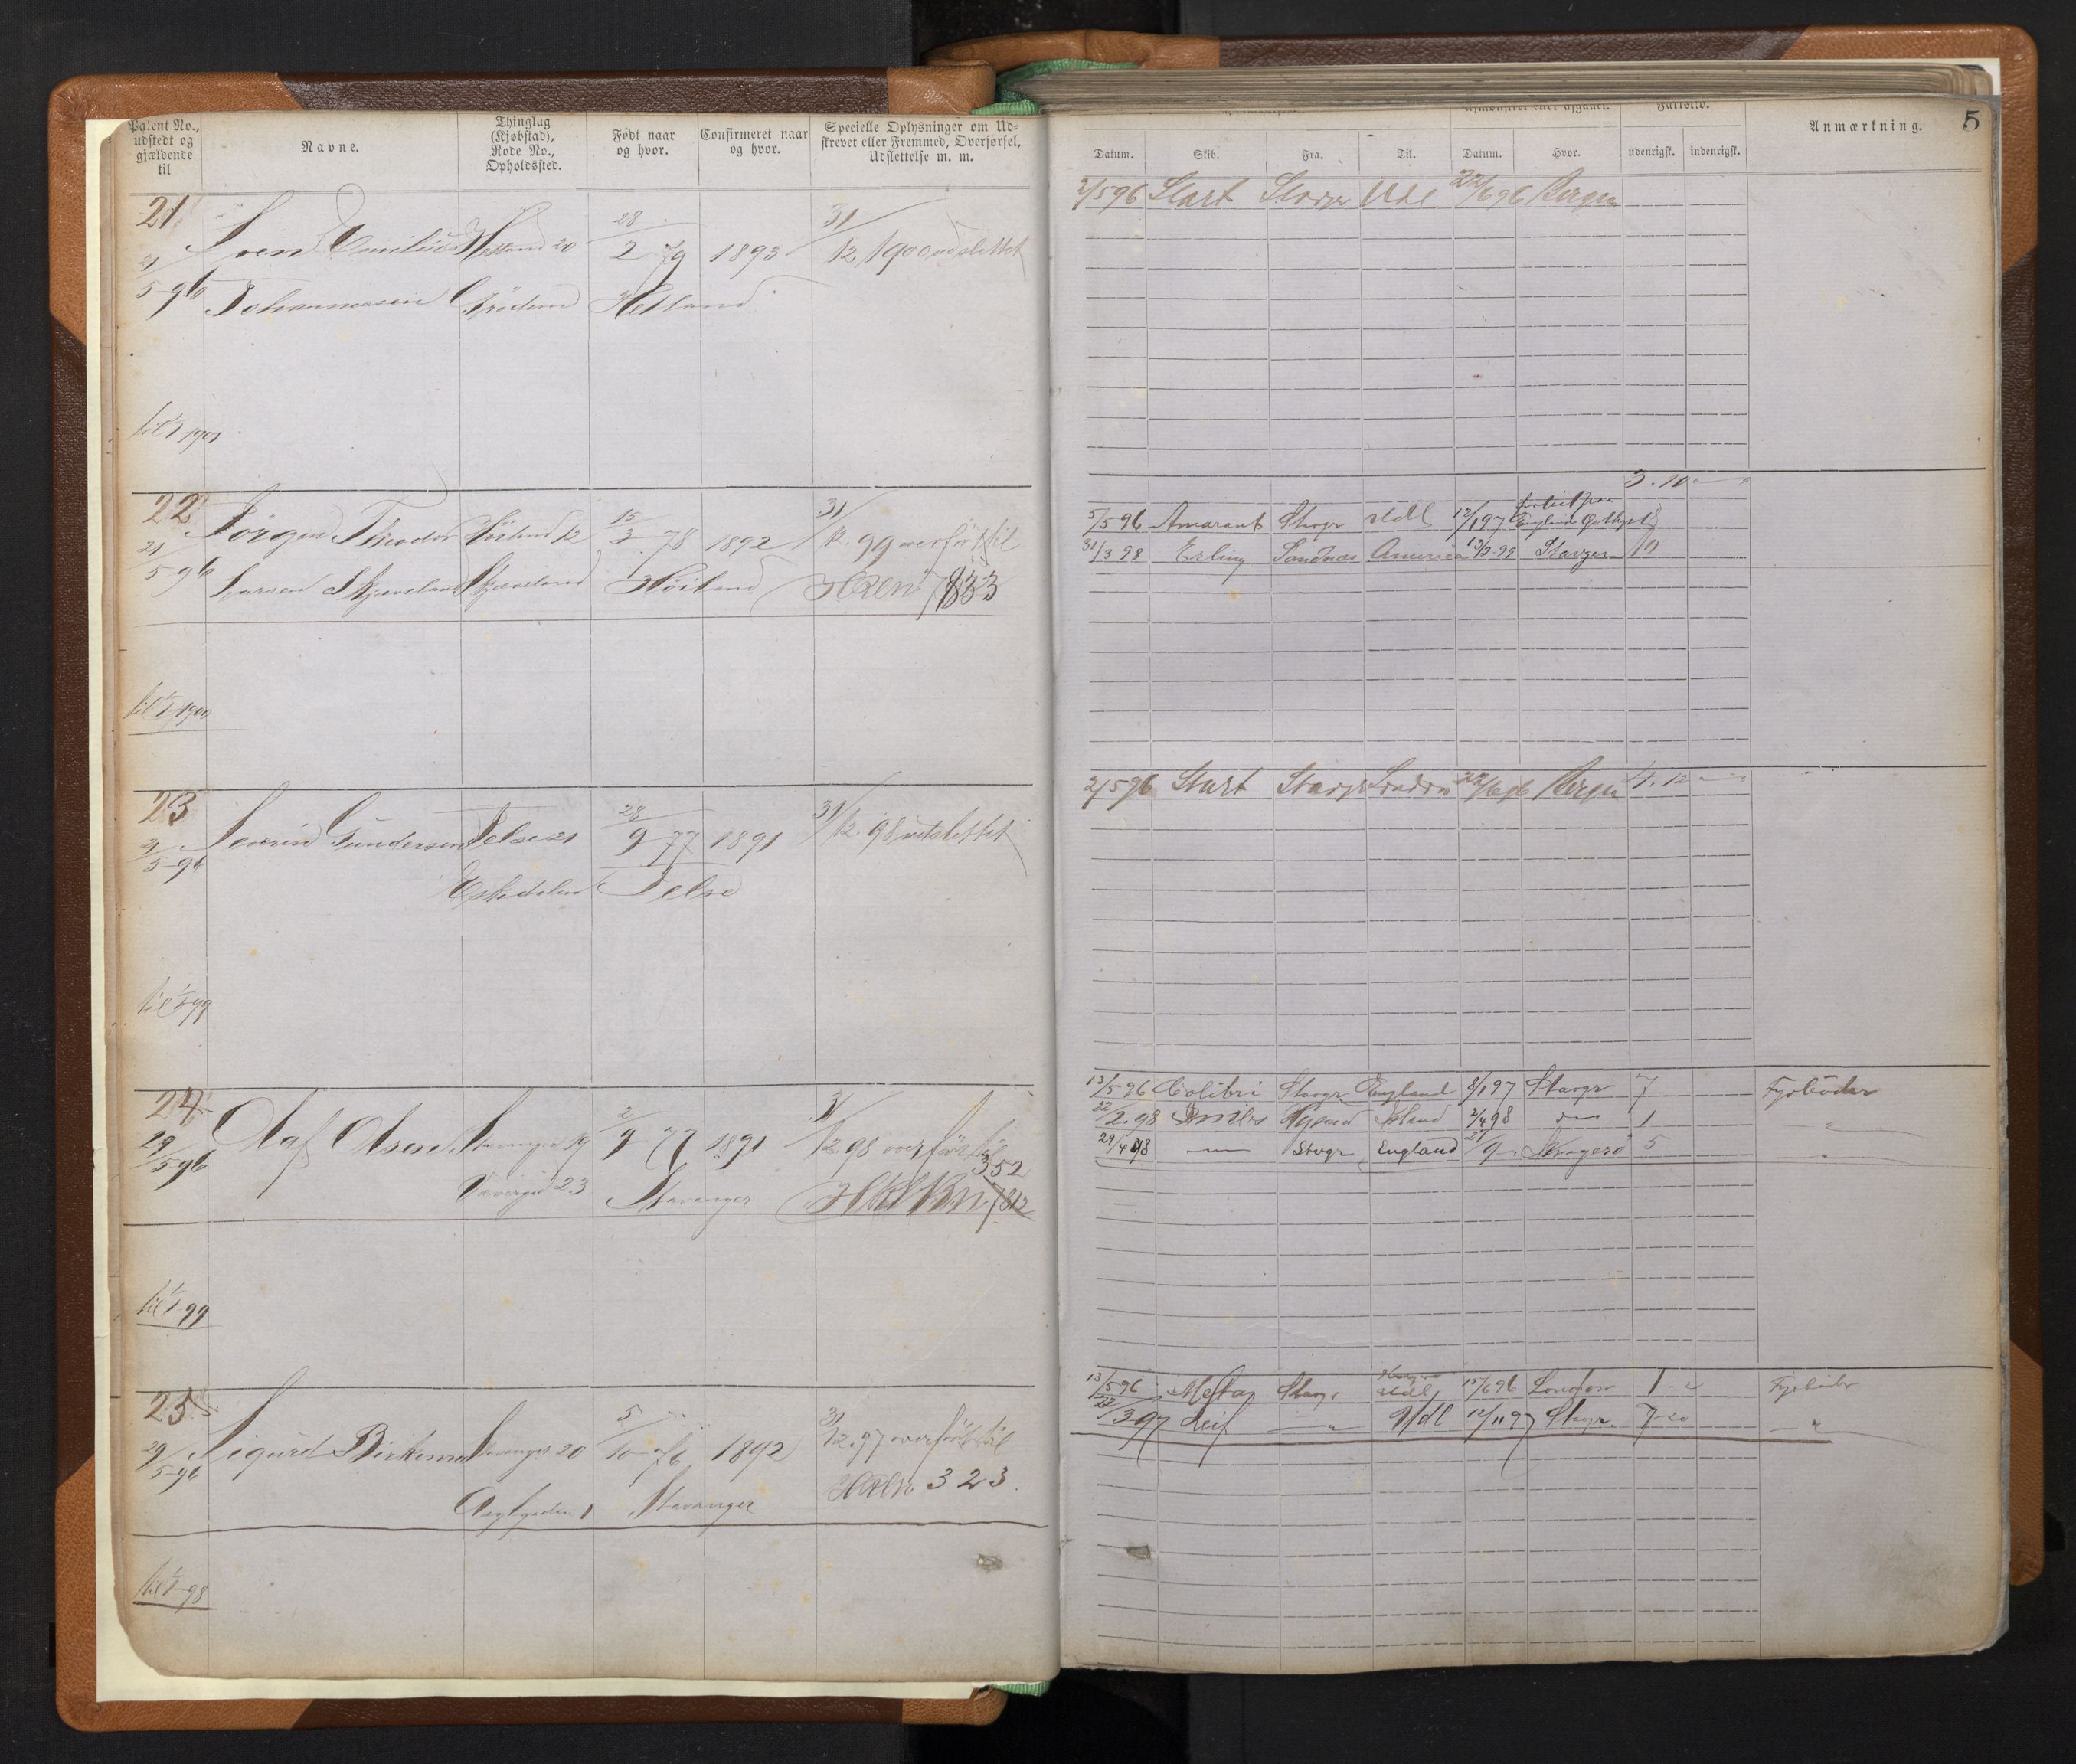 Patent No., udstedt og gjældende til
Navne.
Thinglag (Kjøbstad), Rode No., Opholdssted.
Født naar og hvor.
Confirmeret naar og hvor.
Specielle Oplysninger om Ud-
skrevet eller Fremmed, Overførsel,
Udslettelse m. m.
21
Sven Emilius Hetland 20 28/2 79 1893 31/12 1900 udslettet
21/5 96 Johannessen Hetland
til 1/1 1901
22
Jörgen Theodor Höiland 12 15/3 78 1892 31/12. 99 overfört til
21/5 96 Larsen Skjæveland Skjæveland Höiland 833
til 1/1 1900
23
Severin Gundersen Jelse 21 28/9 77 1891 31/12. 98 udslettet
21/5 96 Jelse
til 1/1 99
24
Olaf Olsen Stavanger 19 2/9 77 1891 31/12 98 overfört til
29/5 96 352
23 Stavanger 812
til 1/1 99
25
Sigurd Stavanger 20 5/10 76 1892 31/12. 97 overfört til
29/5 96 Stavanger 323.
til 1/1 98
Anmærkning. 5
Datum. Skib. Fra. Til. Datum. Hvor. udenrigsk. indenrigsk.
2/5 96 Start Stavgr Udl 22/6 96 Bergen
3. 10
5/5 96 Amarant Stvgr Udl 12/1 97 England 8
31/3 98 Erling Sandnæs America 99 Stavger 10
2/5 96 Start Stavgr London 22/6 96 Bergen 4. 12
13/5 96 Colibri Stavgr England 8/1 97 Stavgr 7 Fyrböder
22/2. 98 Island 2/4 98 do 1 "
29/4 98 — Stvgr England 27/9 Kragerö 5 "
13/5 96 Stavgr Udl 15/6 96 London 1 Fyrböder
22/3 97 Leif — " Udl 12/11 97 Stavgr. 7 20 — "